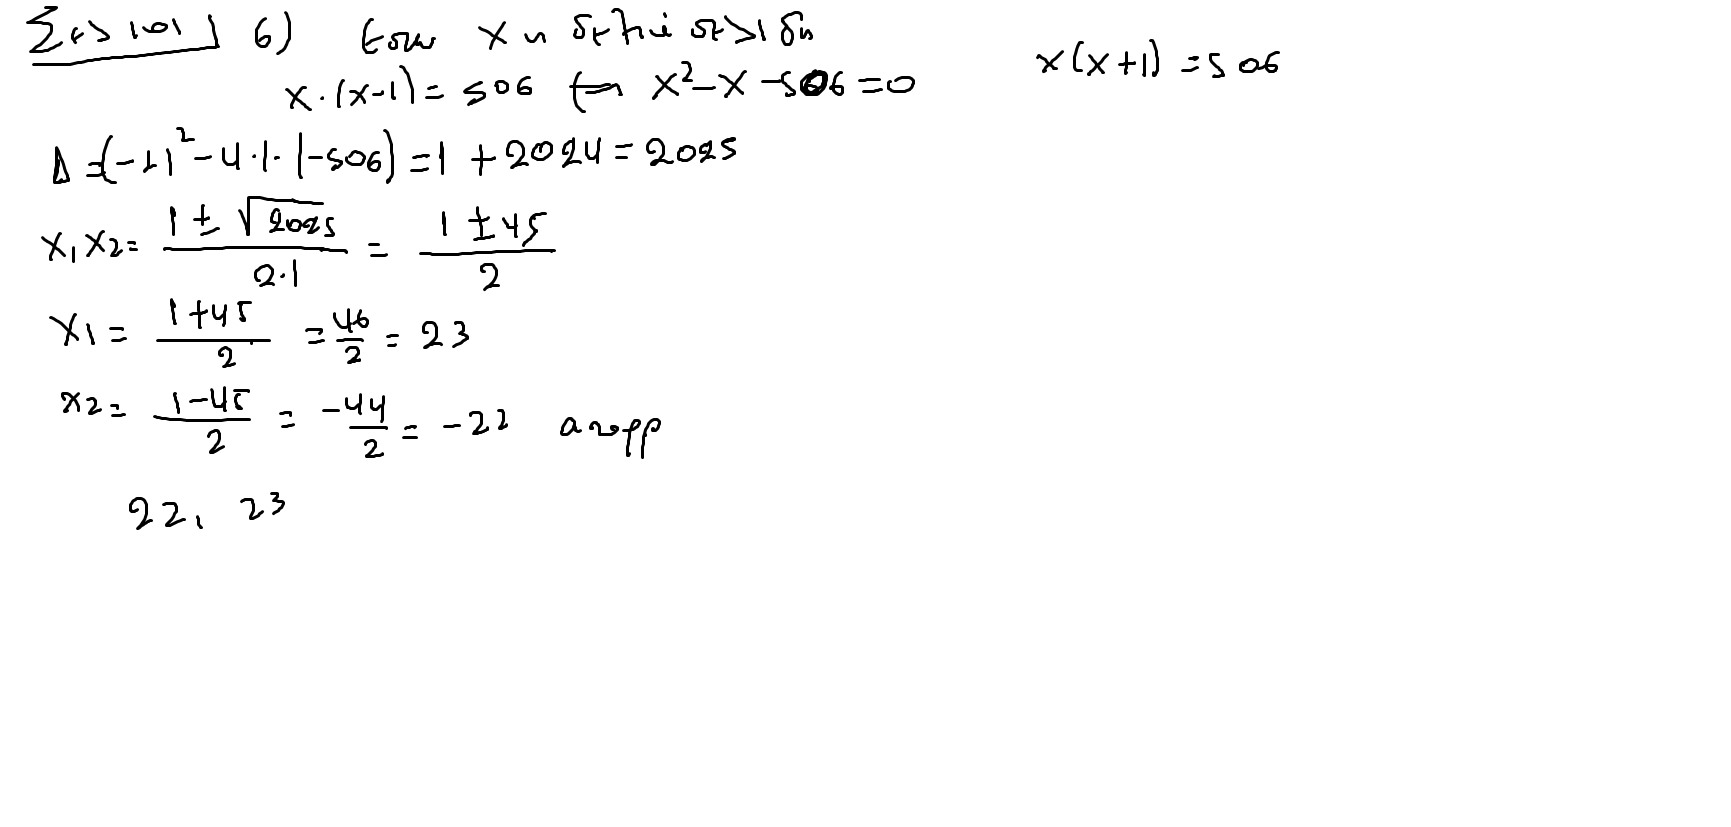 Σελ 101 6) Έστω x η δεξιά σελίδα
x·(x-1) = 506 ⟺ x²-x-506=0
x(x+1) = 506
Δ=(-1)²-4·1·(-506)=1+2024=2025
x₁x₂= (1±√2025)/(2·1) = (1±45)/2
x₁= (1+45)/2 = 46/2 = 23
x₂= (1-45)/2 = -44/2 = -22 απορρ
22, 23